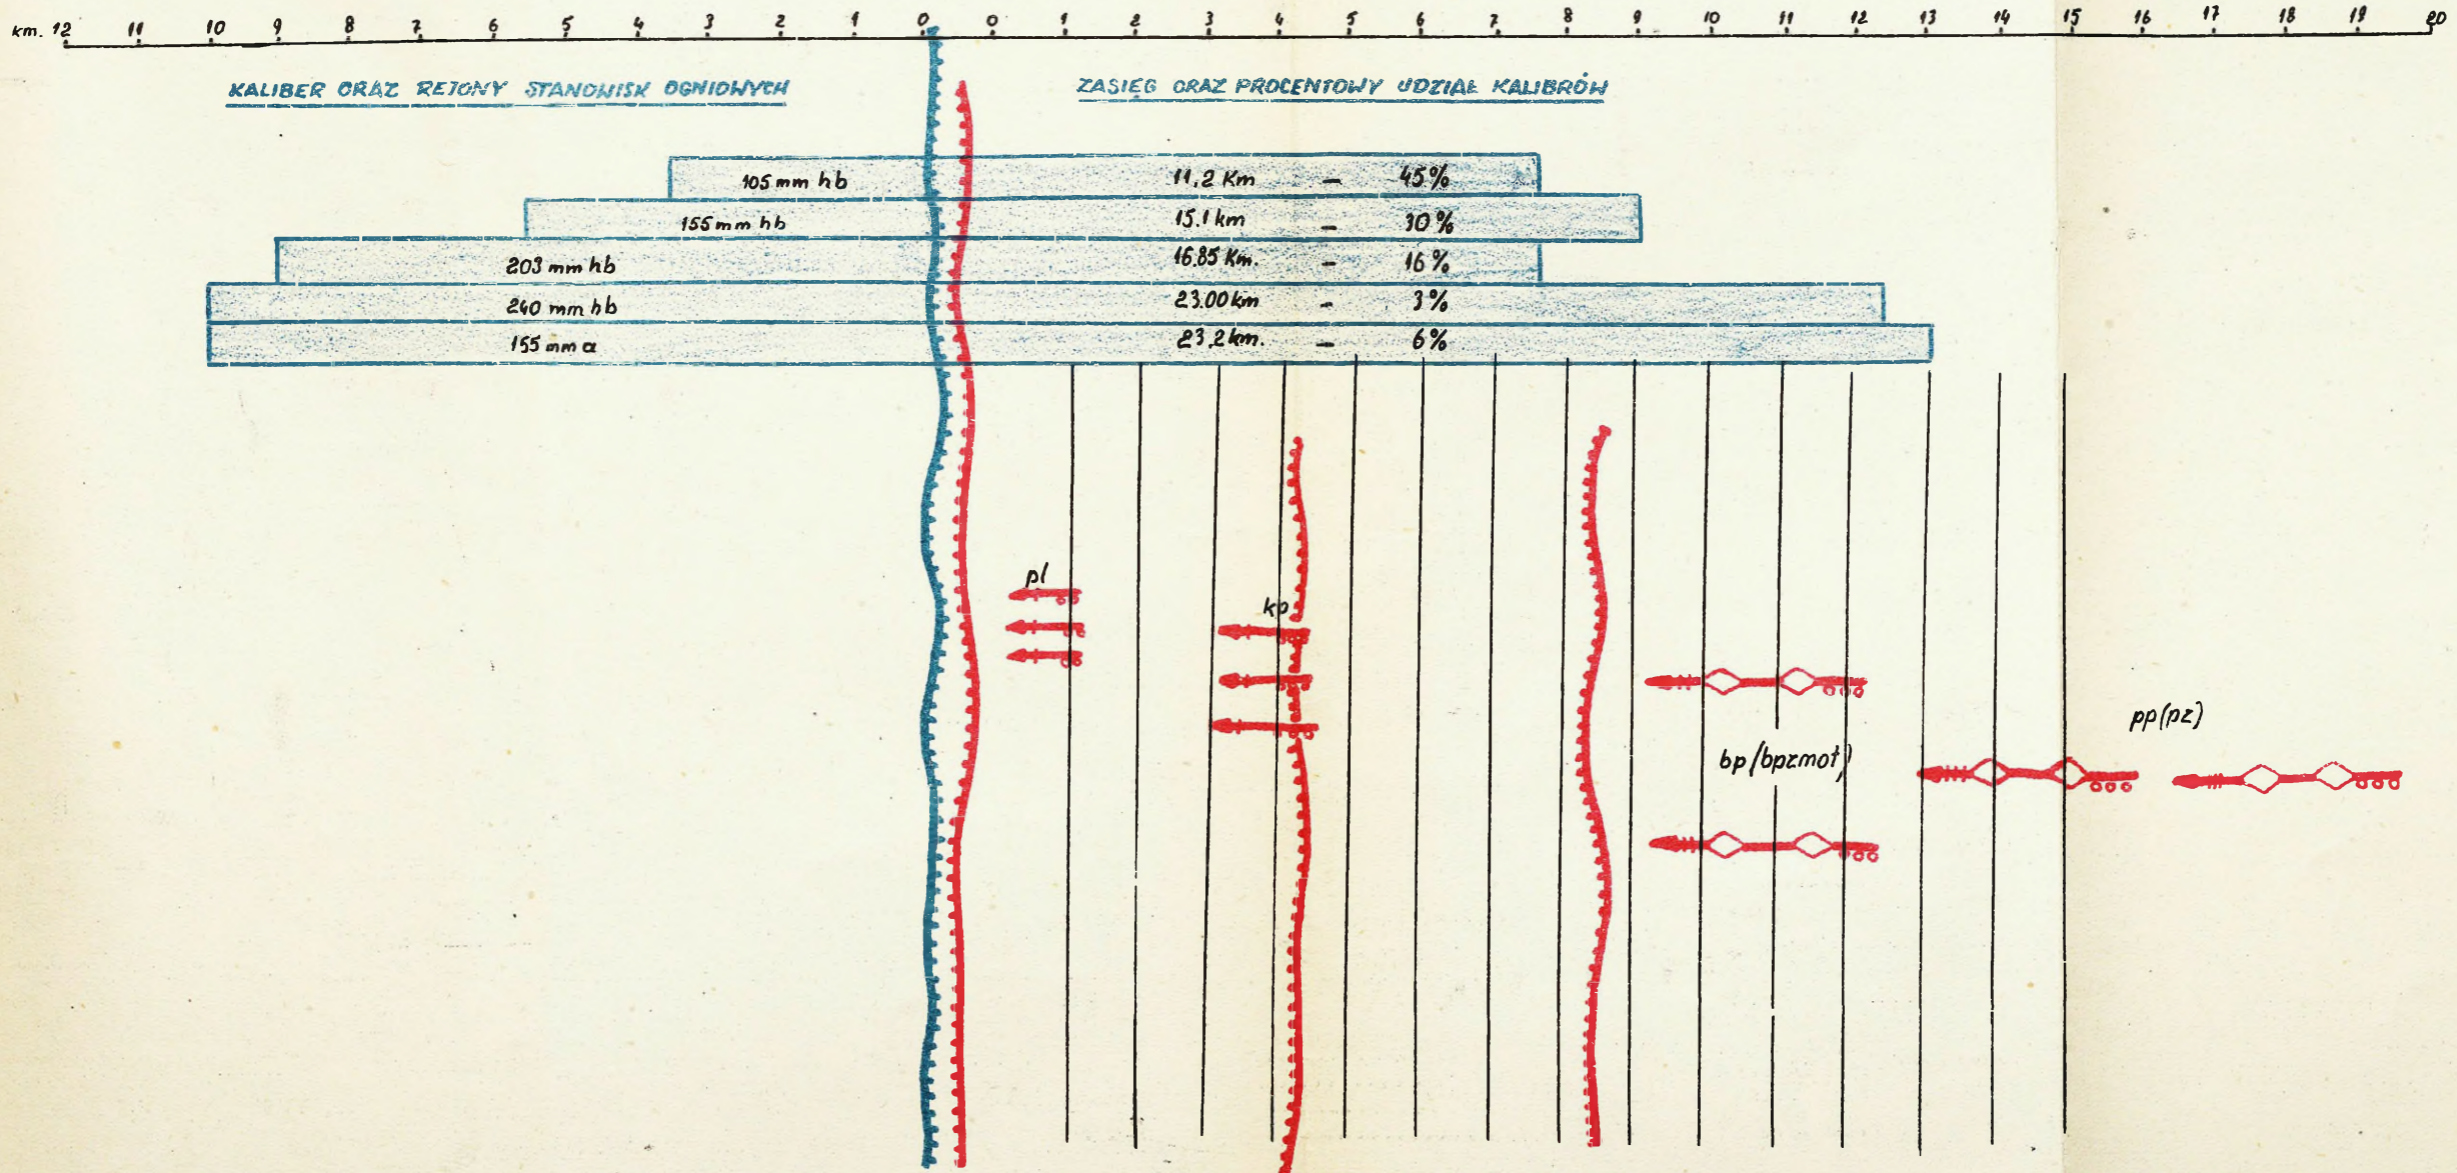 km. 12 11 10 9 8 7 6 5 4 3 2 1 0 0 1 2 3 4 5 6 7 8 9 10 11 12 13 14 15 16 17 18 19 20
KALIBER ORAZ REJONY STANOWISK OGNIOWYCH
ZASIĘG ORAZ PROCENTOWY UDZIAŁ KALIBRÓW
105 mm hb 11,2 Km – 45%
155 mm hb 15.1 km – 30%
203 mm hb 16.85 Km. – 16%
240 mm hb 23.00 km – 3%
155 mm a 23,2 km. – 6%
pl
kp
bp/bpzmot)
pp(pz)